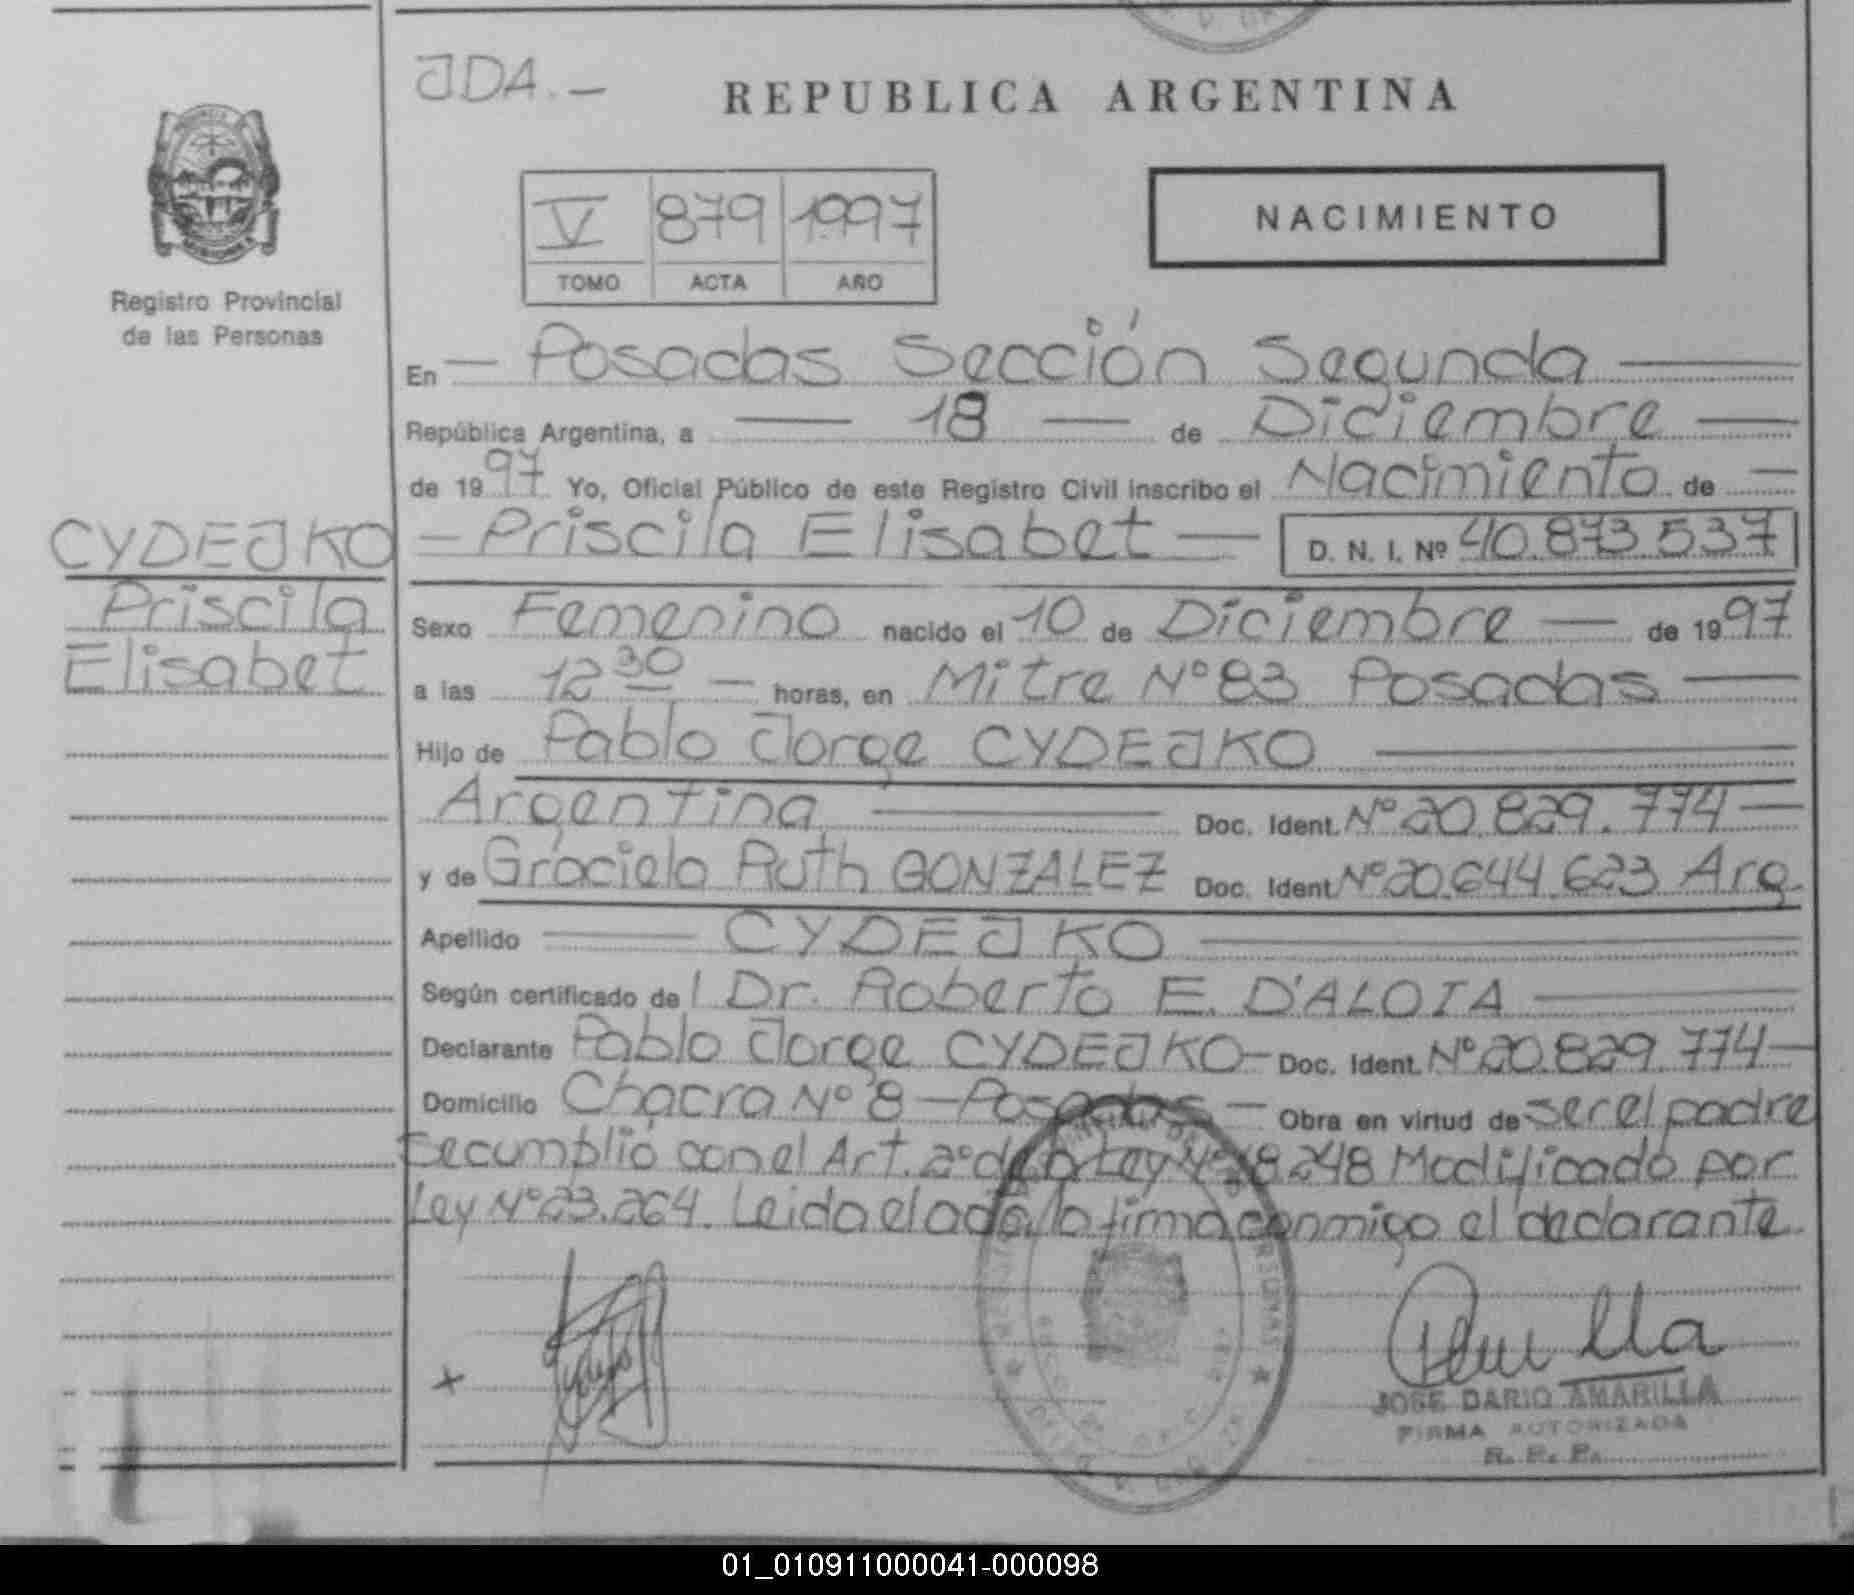 JDA.-
REPUBLICA ARGENTINA
V 879 1997
TOMO ACTA AÑO
NACIMIENTO
Registro Provincial
de las Personas
En - Posadas Sección Segunda
República Argentina, a 18 de Diciembre
de 1997 Yo, Oficial Público de este Registro Civil inscribo el Nacimiento de -
CYDEJKO
Priscila
Elisabet
- Priscila Elisabet - D. N. I. Nº 40.873.537
Sexo Femenino nacido el 10 de Diciembre - de 1997
a las 12 30 - horas, en Mitre Nº 83 Posadas
Hijo de Pablo Jorge CYDEJKO
Argentina Doc. Ident. Nº 20.829.774 -
y de Graciela Ruth GONZALEZ Doc. Ident. Nº 20.644.623 Arg.
Apellido CYDEJKO
Según certificado del Dr. Roberto E. D'ALOIA
Declarante Pablo Jorge CYDEJKO - Doc. Ident. Nº 20.829.774 -
Domicilio Chacra Nº 8 - Posadas - Obra en virtud de ser el padre
Se cumplió con el Art. 2º de la Ley Nº 18.248 Modificado por
Ley Nº 23.264. Leida el acta, la firma conmigo el declarante.
JOSE DARIO AMARILLA
FIRMA AUTORIZADA
R. P. P.
01_010911000041-000098